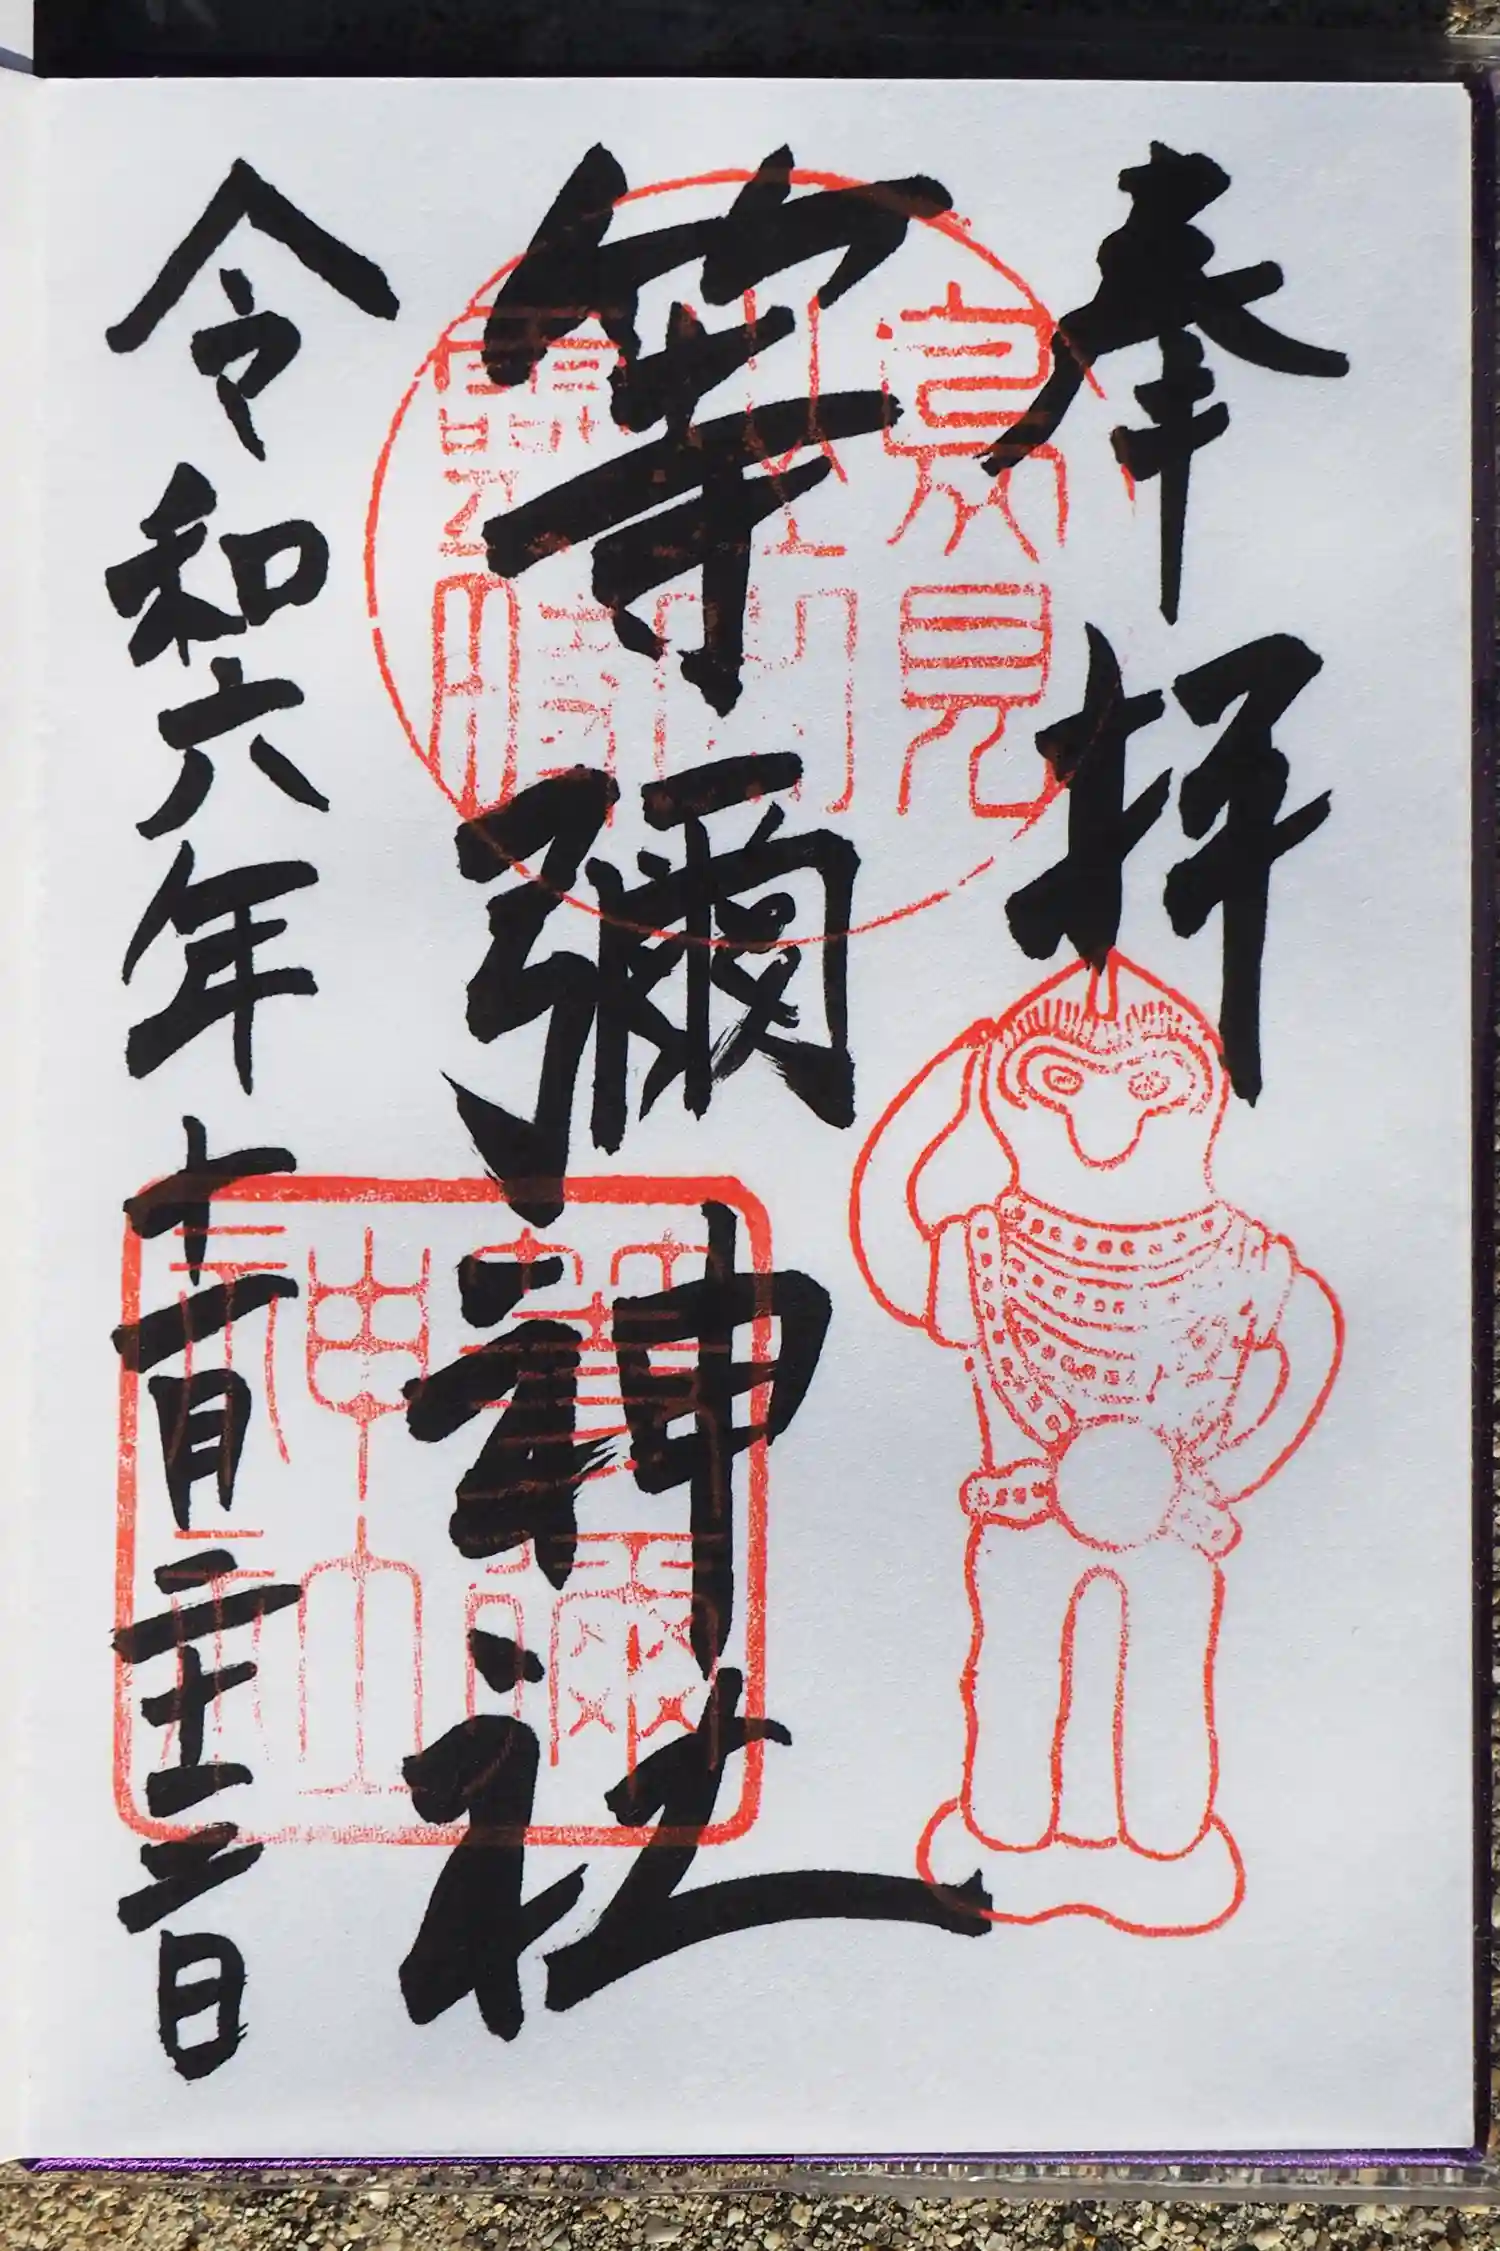 奉拝
等彌神社
令和六年十一月二十三日
等彌
神社